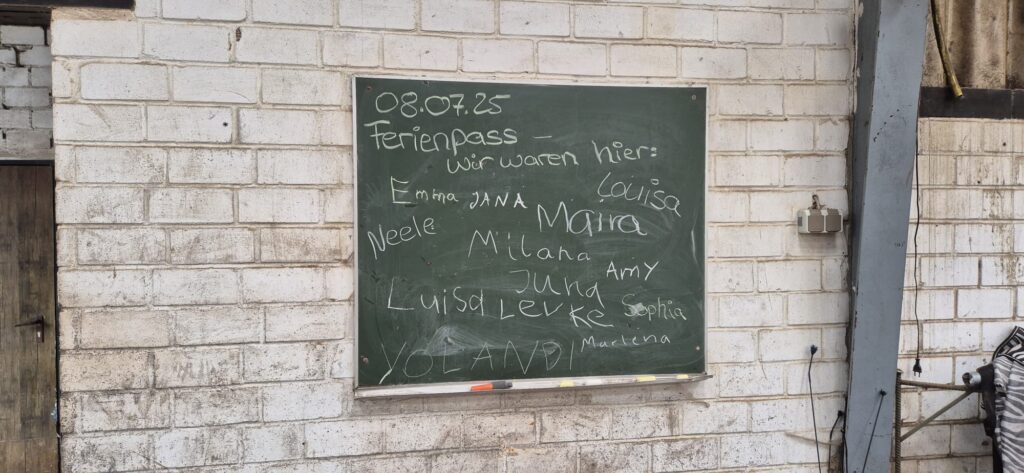 08.07.25
Ferienpass –
wir waren hier:
Emma JANA Louisa
Neele Maira
Milana
Juna Amy
Luisa Levke Sophia
YOLANDI Marlena